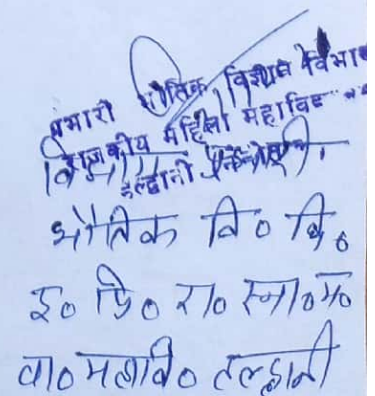 प्रभारी भौतिक विज्ञान विभाग
राजकीय महिला महाविद्
हल्द्वानी
भौतिक वि० वि०
इ० प्रि० रा० स्ना० म०
वा० महावि० हल्द्वानी